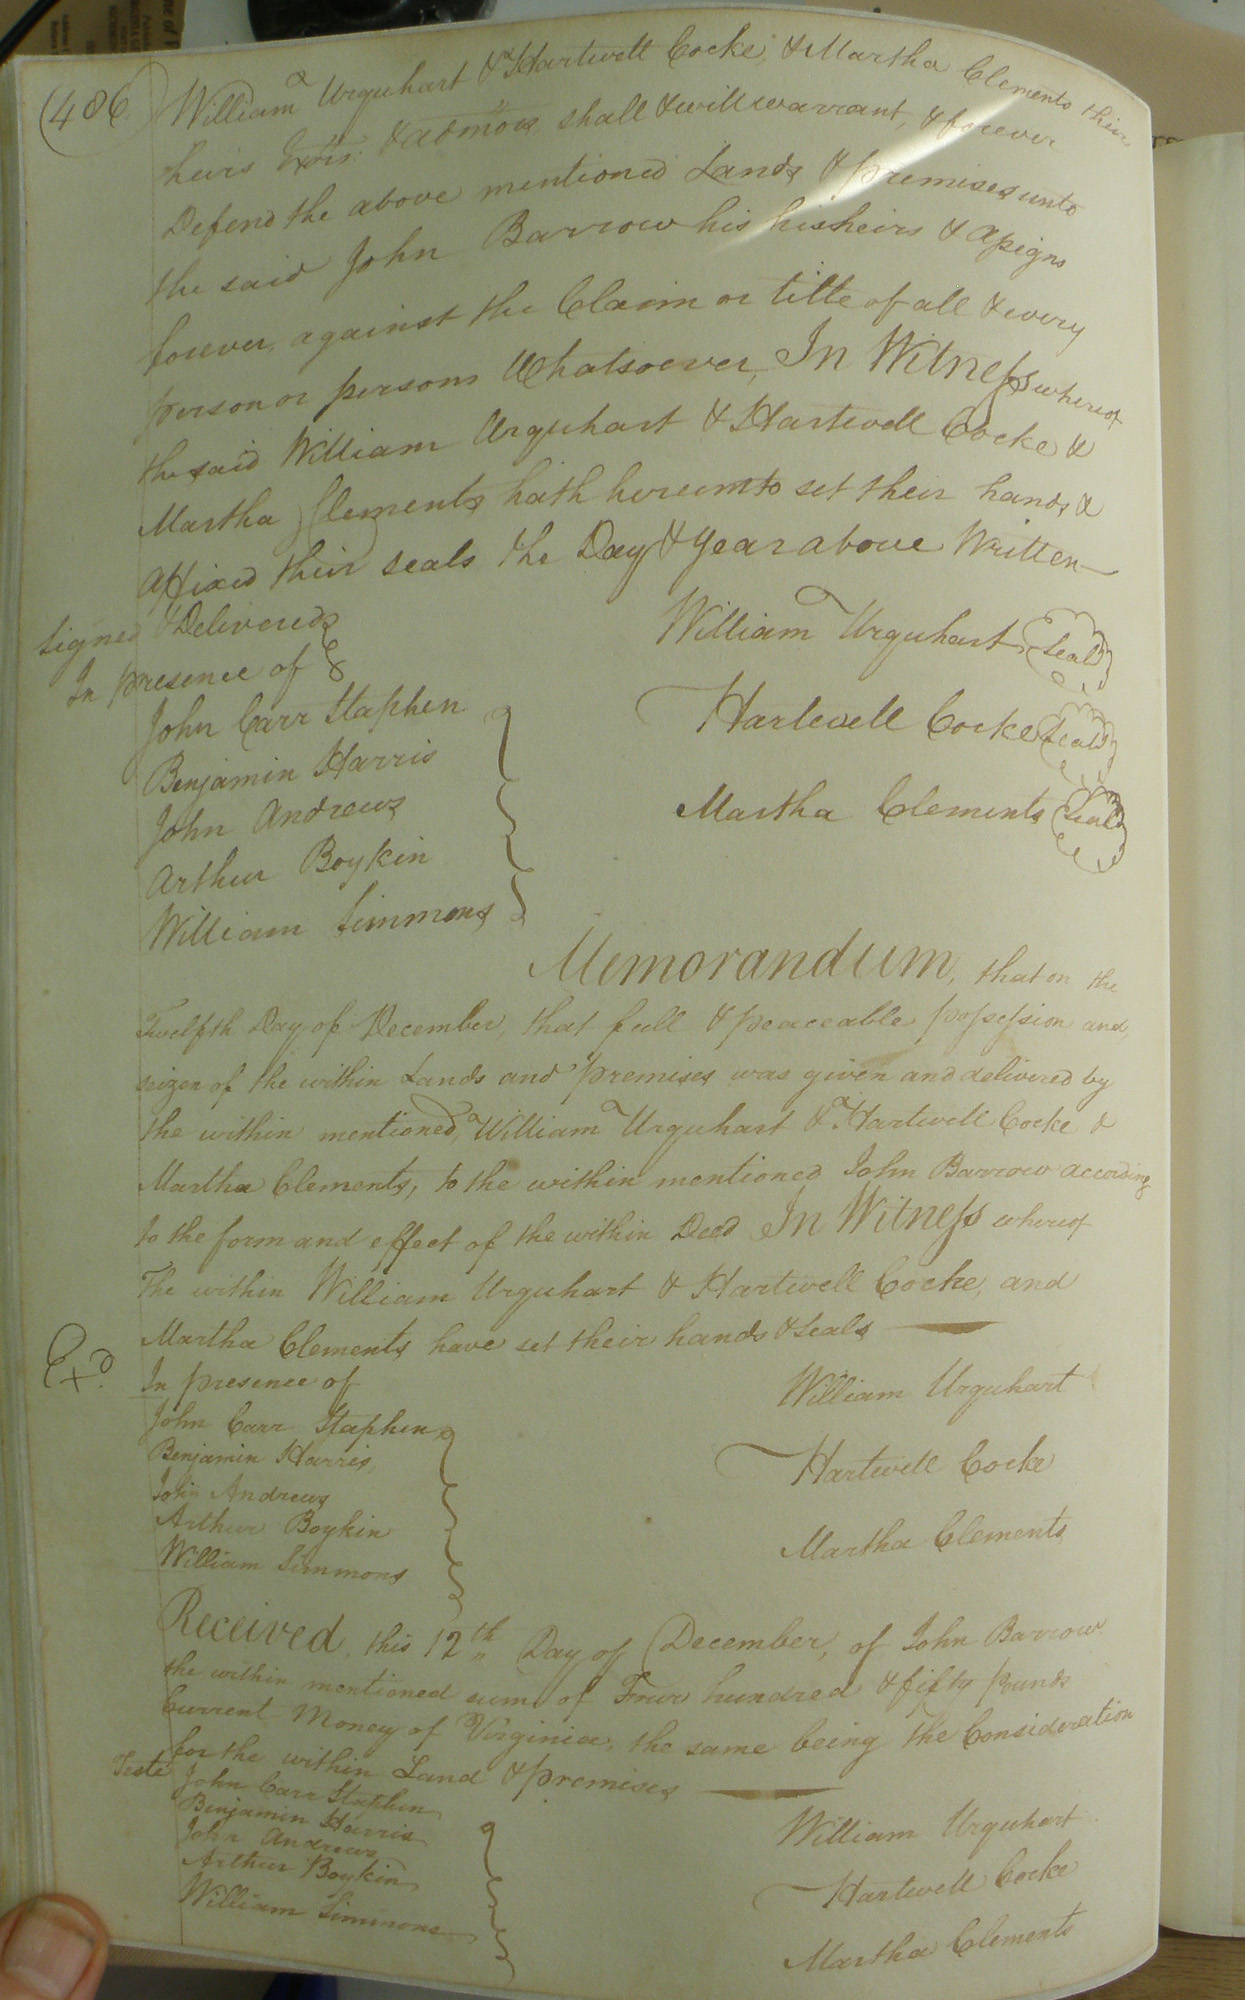 (486)
William Urquhart & Hartwell Cocke, & Martha Clements their
heirs Exors. & admors, shall & will warrant, & forever
Defend the above mentioned Lands & premises unto
the said John Barrow his his heirs & assigns
forever, against the Claim or title of all & every
person or persons Whatsoever, In Witness whereof
the said William Urquhart & Hartwell Cocke &
Martha Clements hath hereunto set their hands &
affixed their seals the Day & year above Written
Signed & Delivered
In presence of
William Urquhart Seal
John Carr Staphen
Hartwell Cocke Seal
Benjamin Harris
John Andrews
Martha Clements Seal
Arthur Boykin
William Simmons
Memorandum, that on the
Twelfth Day of December, that full & peaceable possession and
seizen of the within Lands and premises was given and delivered by
the within mentioned, William Urquhart & Hartwell Cocke &
Martha Clements, to the within mentioned John Barrow according
to the form and effect of the within Deed In Witness whereof
The within William Urquhart & Hartwell Cocke, and
Martha Clements have set their hands & Seals
Exd.
In presence of
William Urquhart
John Carr Staphen
Benjamin Harris,
Hartwell Cocke
John Andrews
Arthur Boykin
Martha Clements
William Simmons
Received, this 12th Day of December, of John Barrow
the within mentioned sum of Four hundred & fifty pounds
Current Money of Virginia, the same being the Consideration
for the within Land & premises
Teste John Carr Staphen
Benjamin Harris
William Urquhart
John Andrews
Arthur Boykin
Hartwell Cocke
William Simmons
Martha Clements